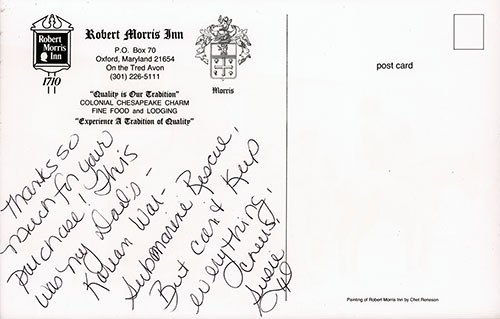 Robert
Morris
Inn
1710
Robert Morris Inn
P.O. Box 70
Oxford, Maryland 21654
On the Tred Avon
(301) 226-5111
Morris
"Quality is Our Tradition"
COLONIAL CHESAPEAKE CHARM
FINE FOOD and LODGING
"Experience A Tradition of Quality"
post card
Thanks so
much for your
purchase! This
was my Dad's -
Korean War -
Submarine Rescue.
But can't keep
everything.
Cheers!
Susie
Painting of Robert Morris Inn by Chet Reneson